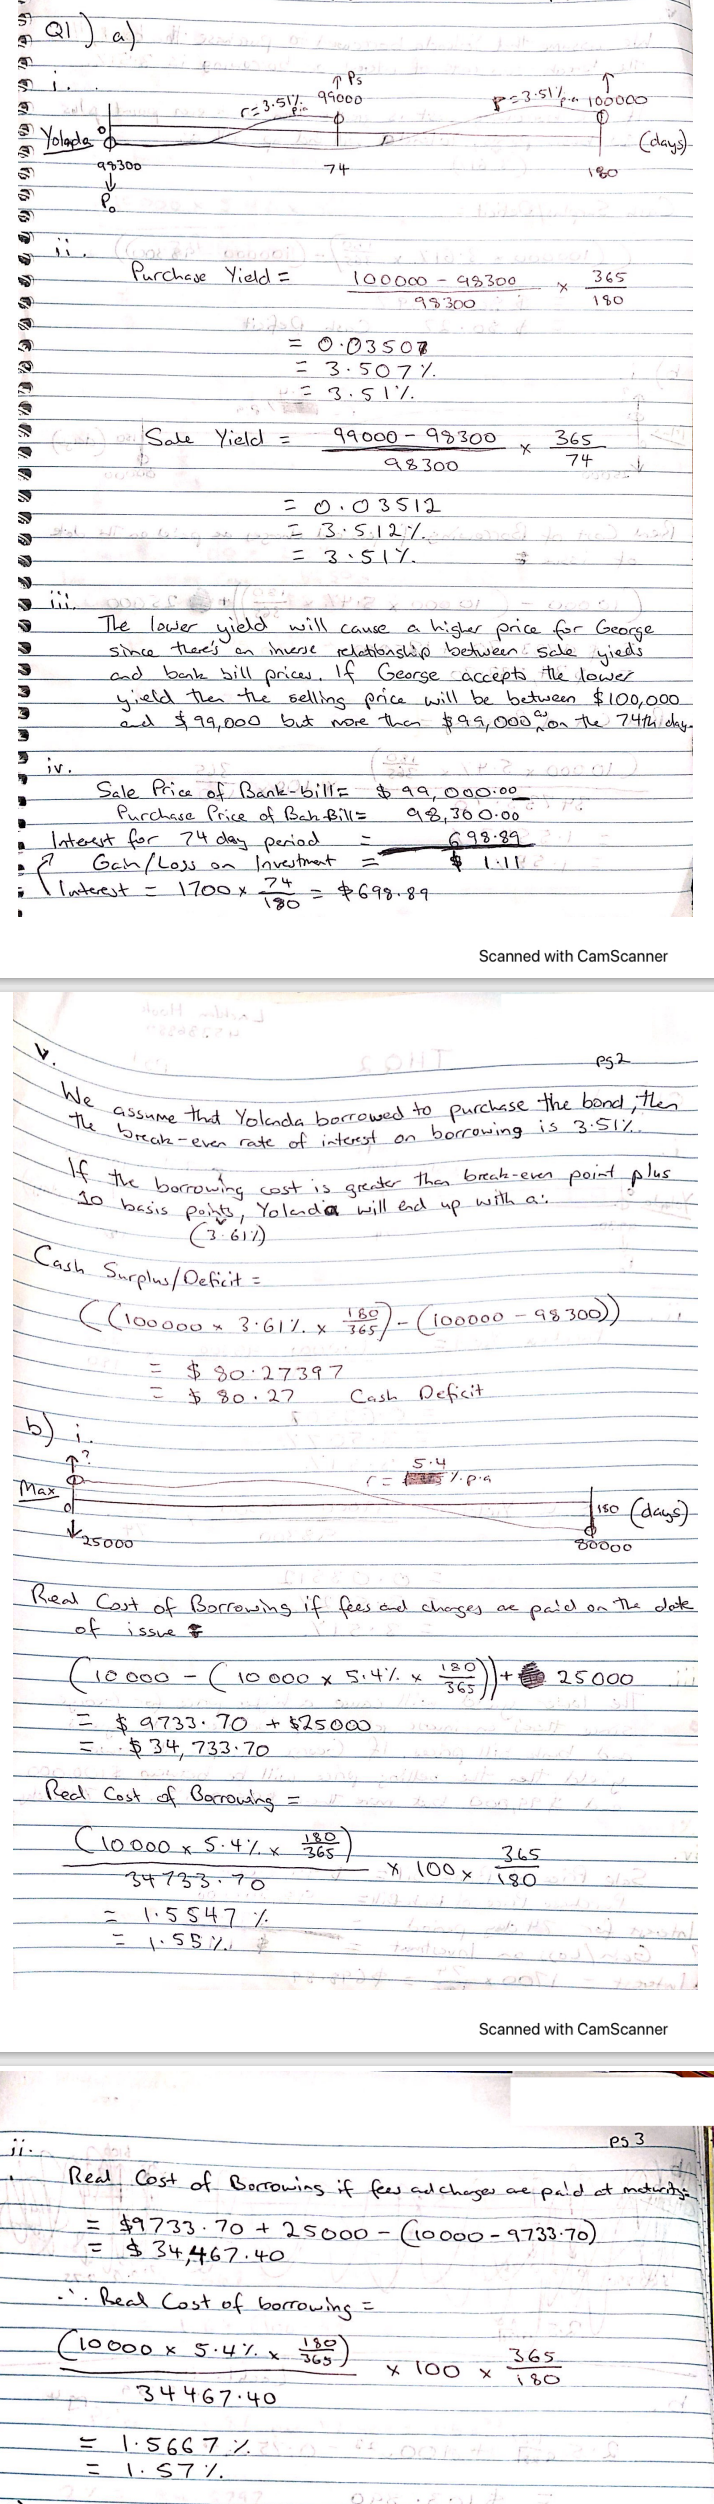 Q1) a)
i.
↑ Ps
99000
r=3.51% p.a
r=3.51% p.a
↑
100000
Yolada
0
(days)
98300
74
180
↓
P₀
ii.
Purchase Yield = 100000 - 98300 / 98300 × 365 / 180
= 0.03507
= 3.507%
= 3.51%
Sale Yield = 99000 - 98300 / 98300 × 365 / 74
= 0.03512
= 3.512%
= 3.51%
iii.
The lower yield will cause a higher price for George
since there's an inverse relationship between sale yields
and bank bill prices. If George accepts the lower
yield then the selling price will be between $100,000
and $99,000 but more than $99,000 as on the 74th day.
iv.
Sale Price of Bank-bill = $ 99,000.00
Purchase Price of Bank-Bill = 98,300.00
Interest for 74 day period = 698.89
Gain/Loss on Investment = $ 1.11
Interest = 1700 × 74 / 180 = $698.89
Scanned with CamScanner
v.
pg2
We assume that Yolanda borrowed to purchase the bond, then
the break-even rate of interest on borrowing is 3.51%.
If the borrowing cost is greater than break-even point plus
10 basis points, Yolanda will end up with a:
(3.61%)
Cash Surplus/Deficit =
((100000 × 3.61% × 180 / 365) - (100000 - 98300))
= $ 80.27397
= $ 80.27 Cash Deficit
b) i.
↑?
5.4
r = % p.a
Max
0
180 (days)
↓ 25000
80000
Real Cost of Borrowing if fees and charges are paid on the date
of issue =
(10000 - (10000 × 5.4% × 180 / 365)) + 25000
= $ 9733.70 + $25000
= $ 34,733.70
Real Cost of Borrowing =
(10000 × 5.4% × 180 / 365) / 34733.70 × 100 × 365 / 180
= 1.5547 %
= 1.55%
Scanned with CamScanner
pg 3
ii.
Real Cost of Borrowing if fees and charges are paid at maturity =
= $9733.70 + 25000 - (10000 - 9733.70)
= $ 34,467.40
∴ Real Cost of borrowing =
(10000 × 5.4% × 180 / 365) / 34467.40 × 100 × 365 / 180
= 1.5667 %
= 1.57%